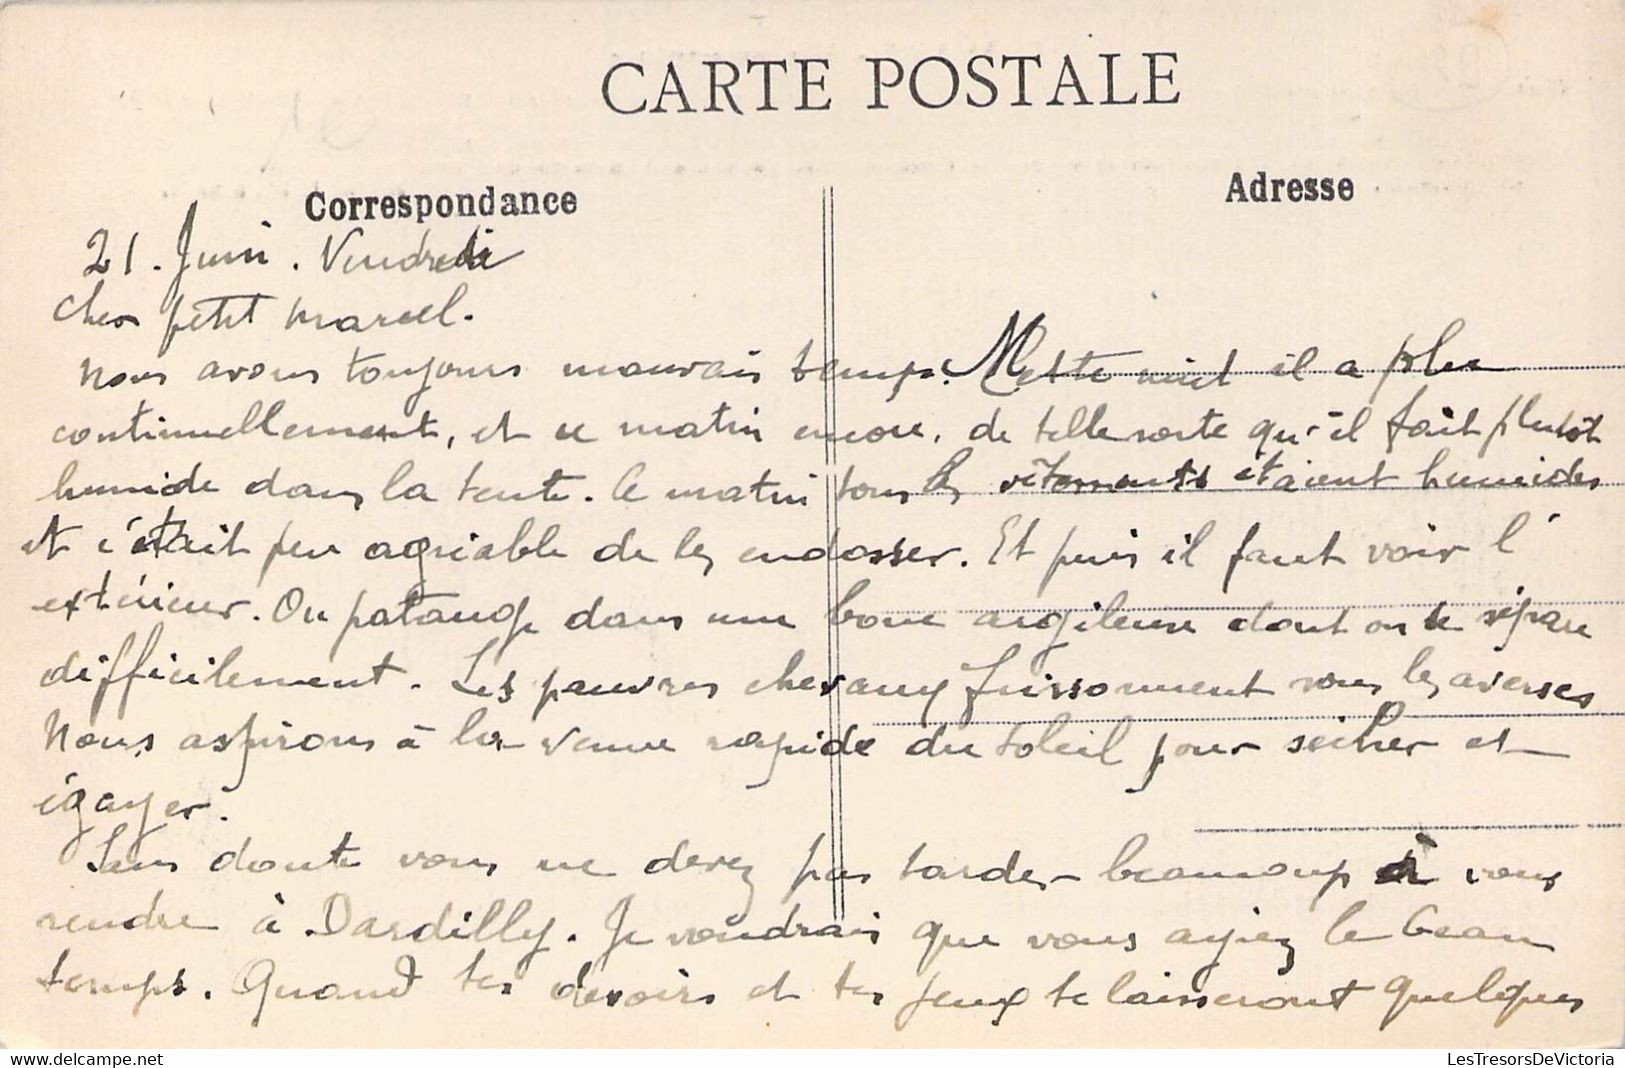 CARTE POSTALE
Correspondance
Adresse
21. Juin. Vendredi
Cher petit Marcel.
Nous avons toujours mauvais temps. Cette nuit il a plu
continuellement, et ce matin encore, de telle sorte qu'il fait plutôt
humide dans la tente. Ce matin tous les vêtements étaient humides
et c'était peu agréable de les endosser. Et puis il faut voir l'
extérieur. On patauge dans une boue argileuse dont on se sépare
difficilement. Les pauvres chevaux frissonnent sous les averses
Nous aspirons à la venue rapide du soleil pour sécher et
égayer.
Sans doute vous ne devez pas tarder beaucoup à vous
rendre à Dardilly. Je voudrais que vous ayiez le beau
temps. Quand tes devoirs et tes jeux te laisseront quelques
delcampe.net
LesTresorsDeVictoria